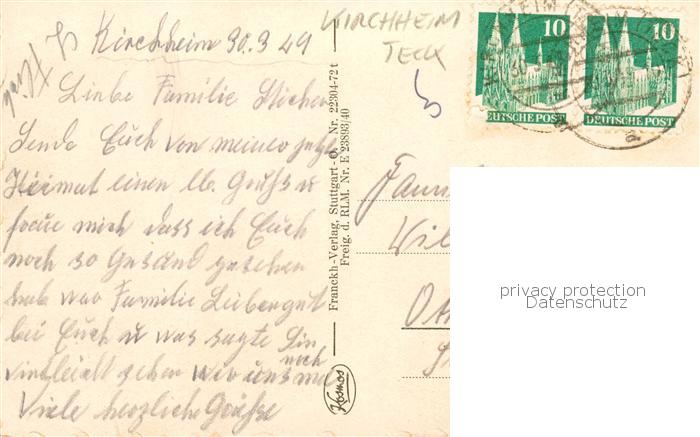 Kirchheim 30.3.49
Liebe Familie
Sende Euch von meiner
Heimat einen lb. Gruß u
freue mich dass ich Euch
noch so Gesund gesehen
hab war Familie Leibergut
bei Euch u was sagte Sin
vielleicht sehen wir uns noch mal
Viele herzliche Grüsse
KIRCHHEIM
TECK
Franckh-Verlag, Stuttgart-O. Nr. 22304-72 t
Freig. d. RLM. Nr. E 23893/40
Kosmos
10
DEUTSCHE POST
10
DEUTSCHE POST
Fam
Wil
privacy protection
Datenschutz